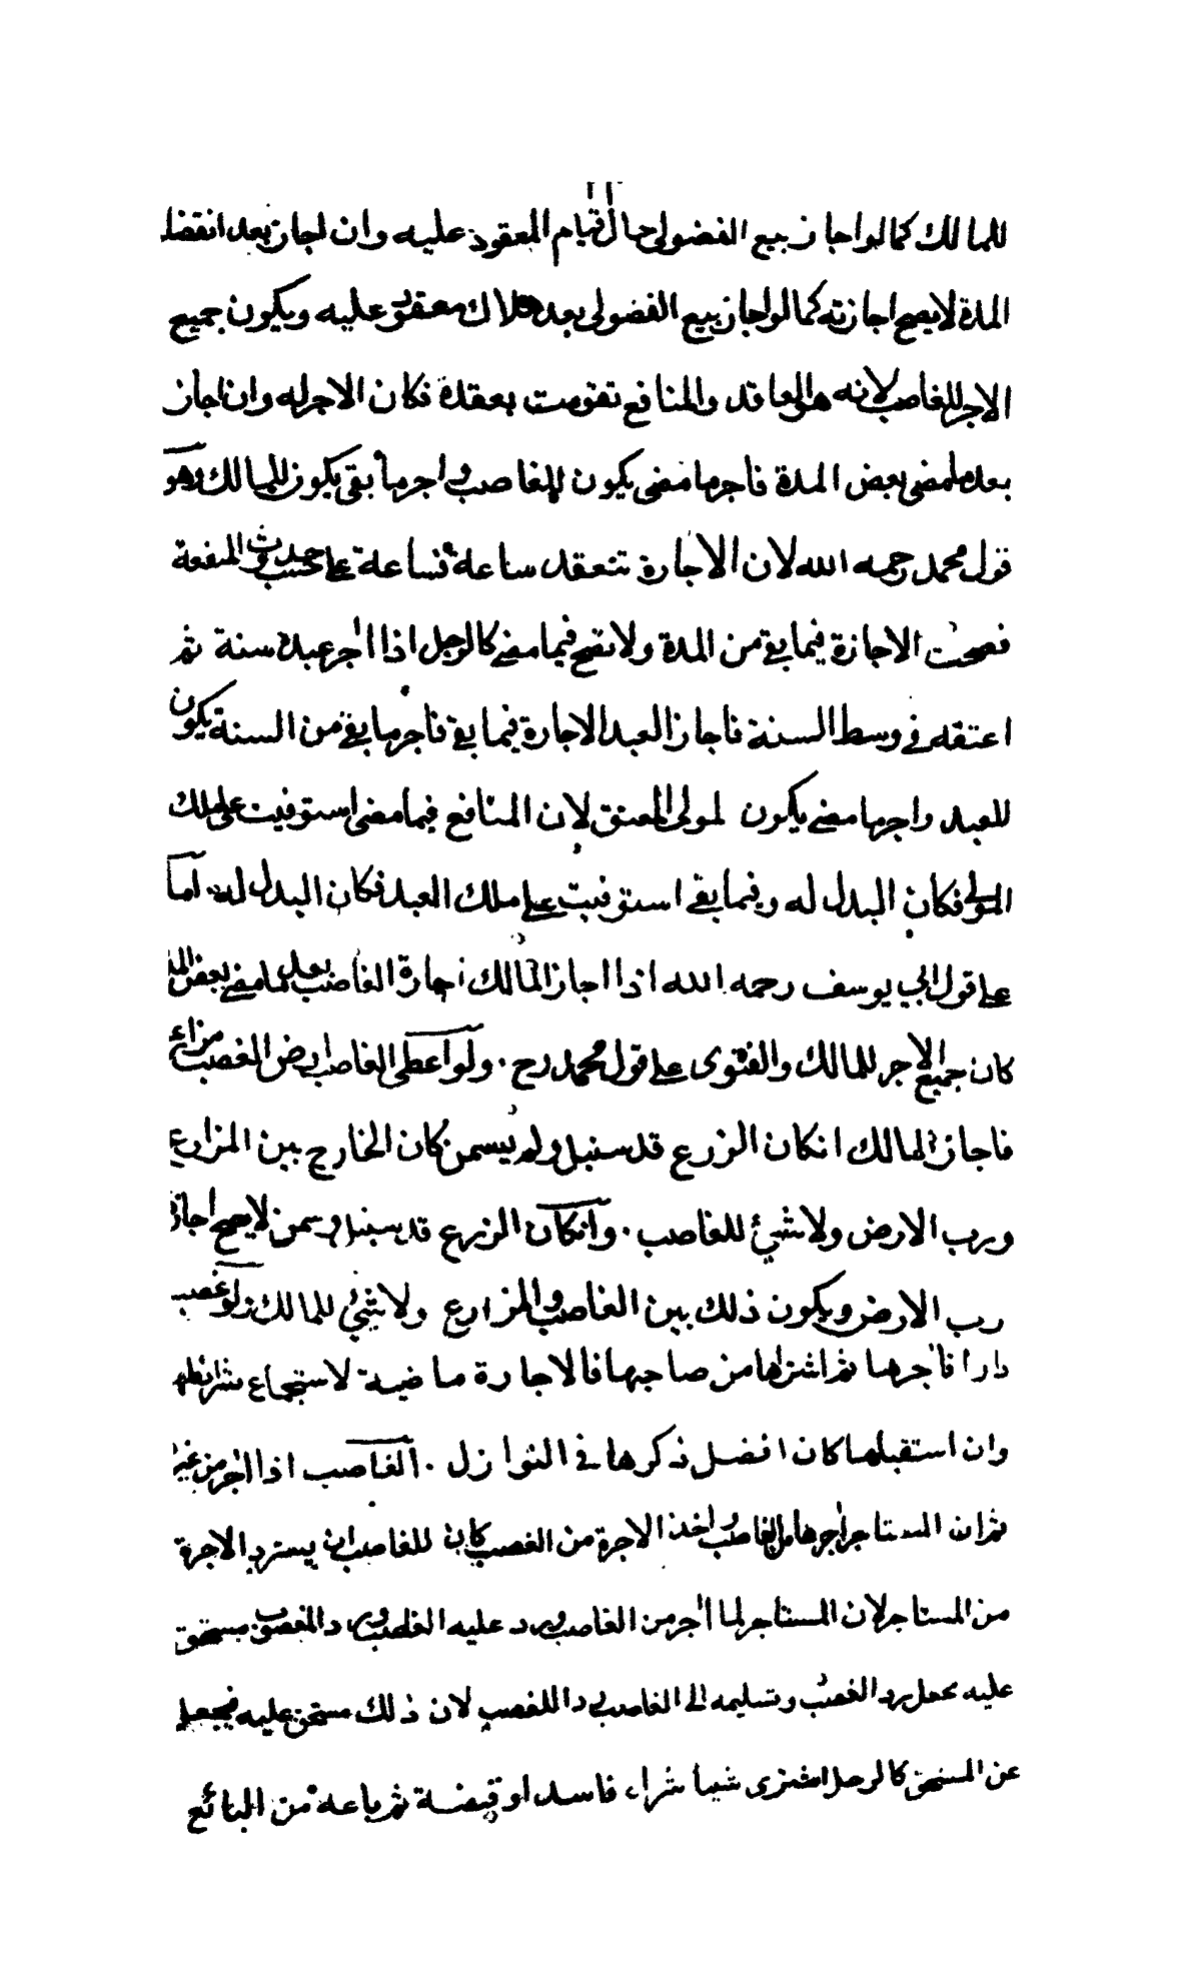 للمالك كما لو اجاز بيع الفضولى حال قيام المعقود عليه وان اجاز بعد انقضا
المدة لا يصح اجازته كما لو اجاز بيع الفضولى بعد هلاك معقود عليه ويكون جميع
الاجر للغاصب لانه هو العاقد والمنافع تقومت بعقدة فكان الاجر له وان اجاز
بعد ما مضى بعض المدة فاجر ما مضى يكون للغاصب واجر ما بقى يكون للمالك وهو
قول محمد رحمه الله لان الاجارة تنعقد ساعة فساعة على حسب حدوث المنفعة
فصحت الاجازة فيما بقي من المدة ولا تصح فيما مضى كالرجل اذا اجر عبده سنة ثم
اعتقه في وسط السنة فاجاز العبد الاجارة فيما بقي فاجر ما بقي من السنة يكون
للعبد واجر ما مضى يكون لمولى المعتق لان المنافع فيما مضى استوفيت على ملك
المولى فكان البدل له وفيما بقي استوفيت على ملك العبد فكان البدل له اما
على قول ابي يوسف رحمه الله اذا اجاز المالك اجارة الغاصب بعد ما مضى بعض المد
كان جميع الاجر للمالك والفتوى على قول محمد رح . ولو اعطى الغاصب ارض الغصب مزارع
فاجاز المالك انكان الزرع قد سنبل ولم يسمن كان الخارج بين المزارع
ورب الارض ولا شئ للغاصب . وانكان الزرع قد سنبل وسمن لا يصح اجاز
رب الارض ويكون ذلك بين الغاصب والمزارع ولا شئ للمالك ولو غصب
دارا فاجرها ثم اشتراها من صاحبها فالاجارة ماضية لاستجماع شرائطها
وان استقبلها كان افضل ذكرها في النوازل . الغاصب اذا اجر من غير
ثم ان المستاجر اجرها من الغاصب واخذ الاجرة من الغصب كان للغاصب ان يسترد الاجرة
من المستاجر لان المستاجر لما اجر من الغاصب ورد عليه الغاصب ورد المغصوب مستحق
عليه يجعل برد الغصب وتسليمه الى الغاصب ردا للغصب لان ذلك مستحق عليه فيجعل
عن المستحق كالرجل اشترى شيأ شراء فاسد او قبضة ثم باعه من البائع